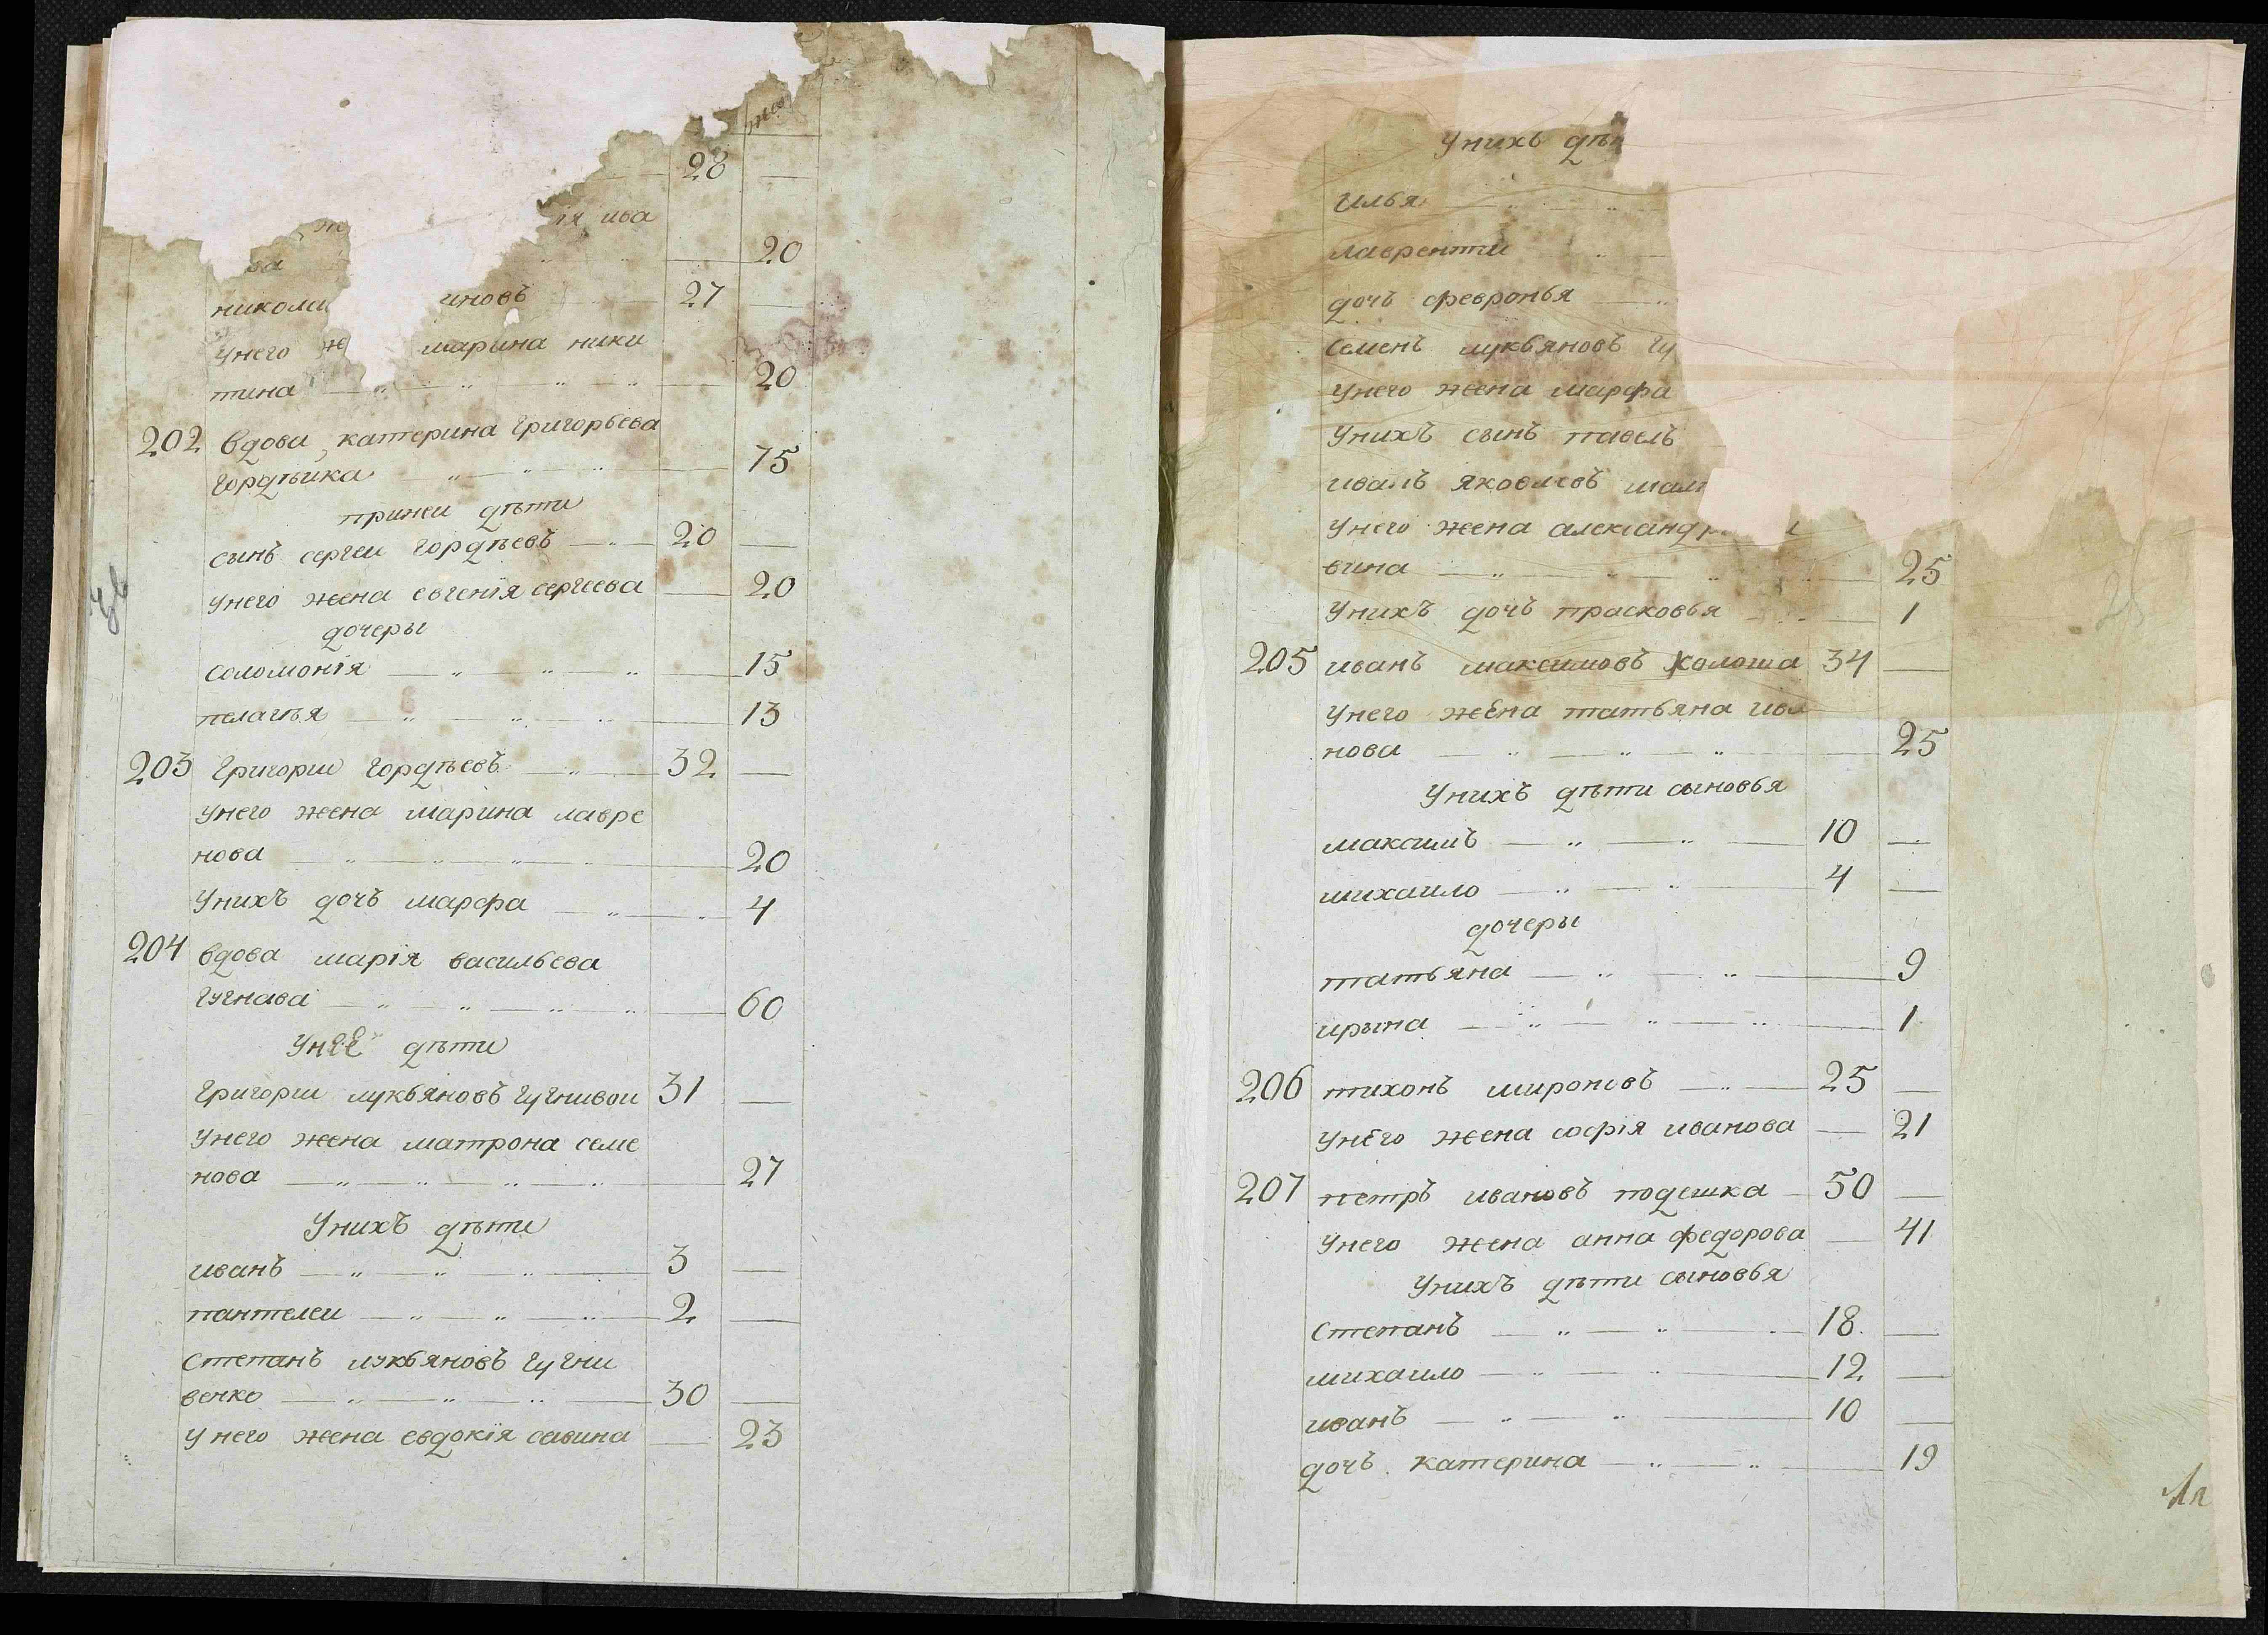 28
ія ива
ва 20
никола иновъ 27
унего же марина ники
тина 20
202 вдова катерина григорьева
гордѣика 75
принеи дѣти
сынъ сергеи гордѣевъ 20
унего жена евгенія сергеева 20
дочеры
соломонія 15
пелагѣя 13
203 григории гордѣевъ 32
унего жена марина лавре
нова 20
унихъ дочь марфа 4
204 вдова марія васильева
гугнава 60
унеё дѣти
григории лукьяновъ гугнивои 31
унего жена матрона семе
нова 27
унихъ дѣти
иванъ 3
пантелеи 2
степанъ лукьяновъ гугни
венко 30
у него жена евдокія савина 23
унихъ дѣт
илья
лаврентии
дочь февронья
семенъ лукьяновъ гу
унего жена марфа
унихъ сынъ павелъ
иванъ яковлевъ
унего жена александр
вина 25
унихъ дочь прасковья 1
205 иванъ максимовъ холоша 34
унего жена татьяна ива
нова 25
унихъ дѣти сыновья
максимъ 10
михаило 4
дочеры
татьяна 9
ирына 1
206 тихонъ мироновъ 25
унего жена софія иванова 21
207 петръ ивановъ подешка 50
унего жена анна федорова 41
унихъ дѣти сыновья
степанъ 18
михаило 12
иванъ 10
дочь катерина 19